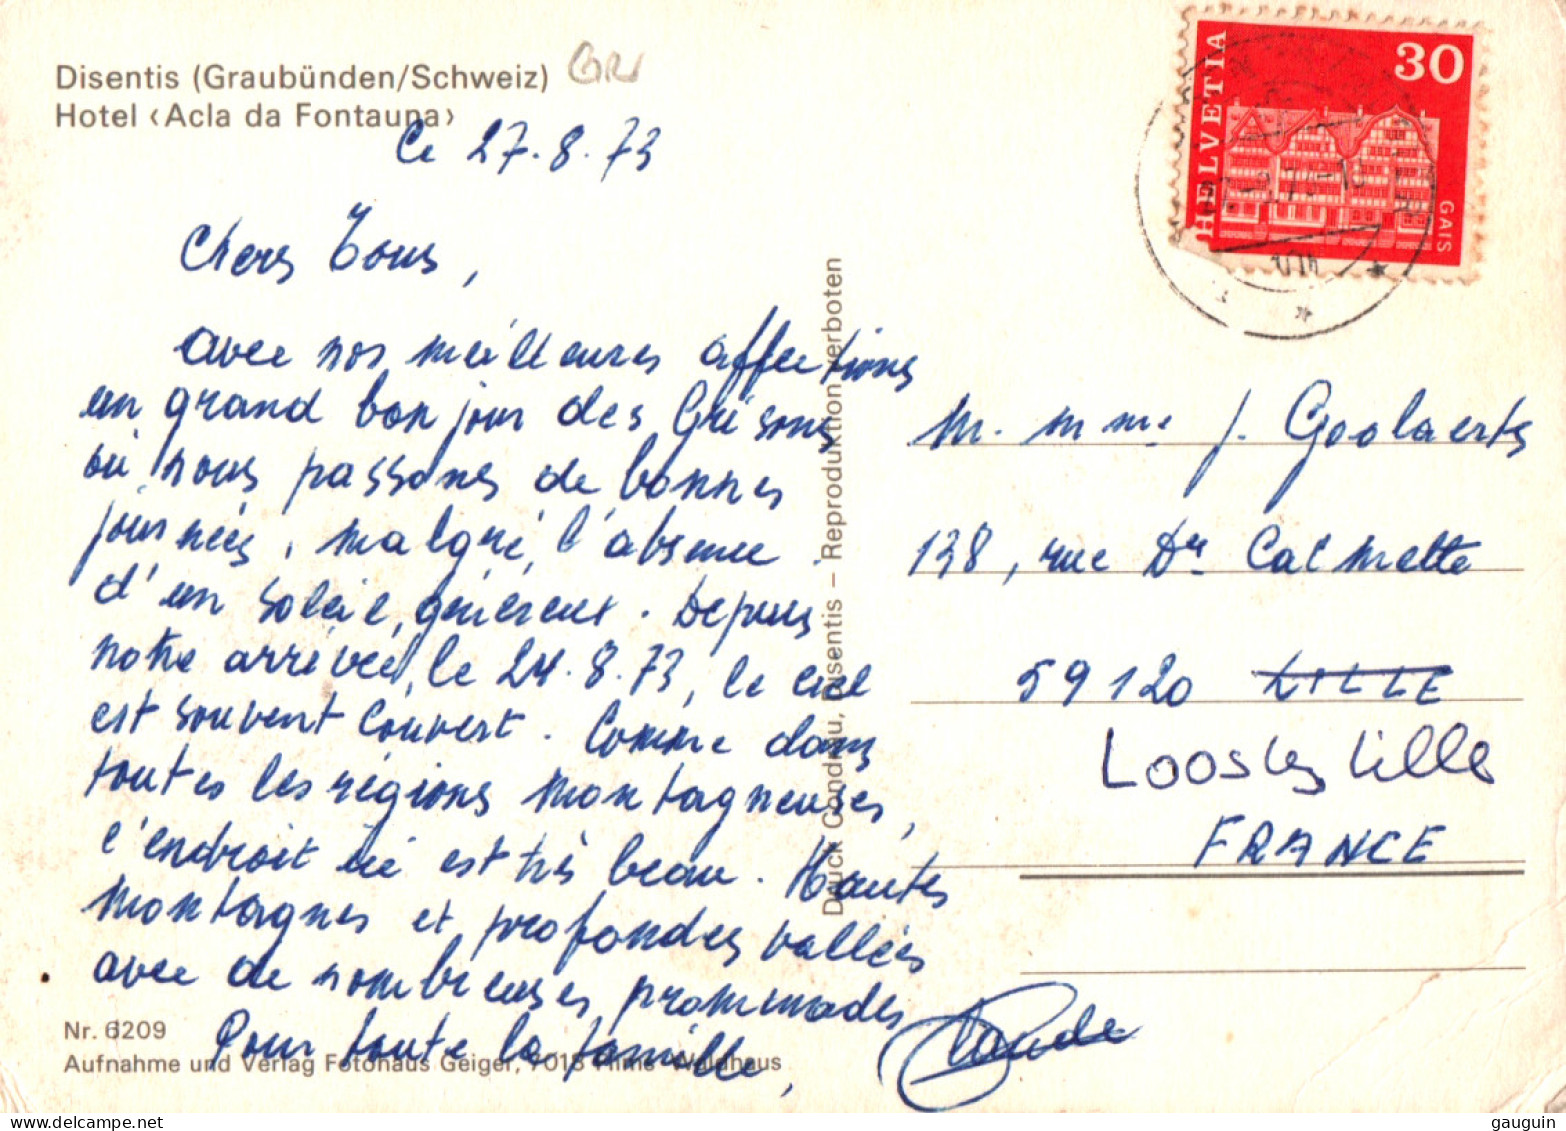 Disentis (Graubünden/Schweiz)
Hotel ‹Acla da Fontauna›
GR
HELVETIA
30
GAIS
Ce 27.8.73
Chers Tous,
avec nos meilleures affections
un grand bonjour des Grisons
où nous passons de bonnes
journées, malgré l'absence
d'un soleil généreux. Depuis
notre arrivée, le 24.8.73, le ciel
est souvent couvert. Comme dans
toutes les régions montagneuses,
l'endroit ici est très beau. Hautes
montagnes et profondes vallées
avec de nombreuses promenades
Pour toute la famille,
Claude
Druck Condrau, Disentis – Reproduktion verboten
M. Mme J. Goolaerts
138, rue Dr Calmette
59120 LILLE
Loos les Lille
FRANCE
Nr. 6209
Aufnahme und Verlag Fotohaus Geiger, 7018 Flims-Waldhaus
delcampe.net
gauguin